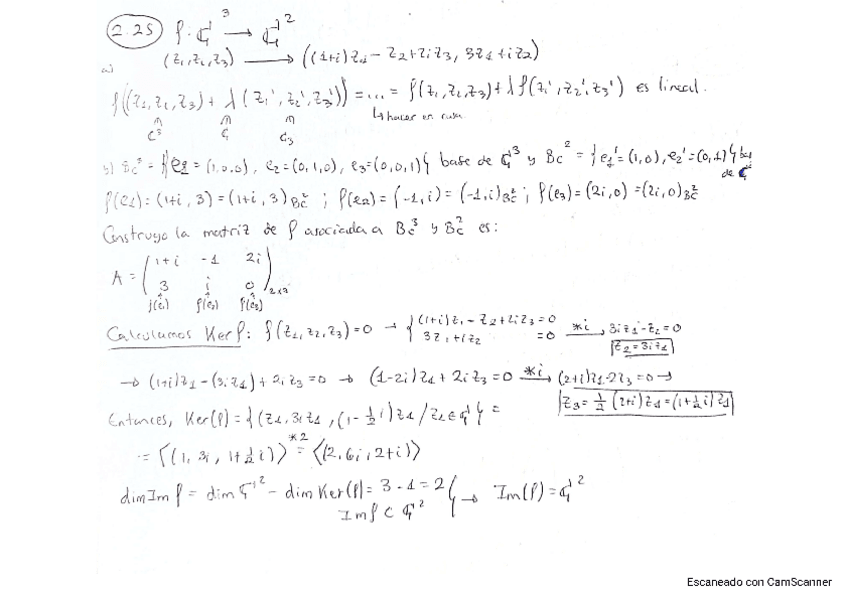 2.25 f: ℂ³ → ℂ²
(z₁, z₂, z₃) → ((1+i)z₁ - z₂ + 2i z₃, 3z₁ + i z₂)
a) f((z₁, z₂, z₃) + λ(z₁', z₂', z₃')) = ... = f(z₁, z₂, z₃) + λ f(z₁', z₂', z₃') es lineal.
↳ hacer en casa
ℂ³ ℂ ℂ₃
b) Bc³ = {e₁ = (1,0,0), e₂ = (0,1,0), e₃ = (0,0,1)} base de ℂ³ y Bc² = {e₁' = (1,0), e₂' = (0,1)} base de ℂ²
f(e₁) = (1+i, 3) = (1+i, 3)Bc² ; f(e₂) = (-1, i) = (-1, i)Bc² ; f(e₃) = (2i, 0) = (2i, 0)Bc²
Construyo la matriz de f asociada a Bc³ y Bc² es:
A = ( 1+i -1 2i
3 i 0 )₂ₓ₃
f(e₁) f(e₂) f(e₃)
Calculamos Ker f: f(z₁, z₂, z₃) = 0 → { (1+i)z₁ - z₂ + 2i z₃ = 0
3z₁ + i z₂ = 0 *i → 3i z₁ - z₂ = 0
z₂ = 3i z₁
→ (1+i)z₁ - (3i z₁) + 2i z₃ = 0 → (1-2i)z₁ + 2i z₃ = 0 *i → (2+i)z₁ - 2z₃ = 0 →
z₃ = ½(2+i)z₁ = (1+½i)z₁
Entonces, Ker(f) = {(z₁, 3i z₁, (1-½i)z₁ / z₁ ∈ ℂ} =
= ⟨(1, 3i, 1+½i)⟩ *2 = ⟨(2, 6i, 2+i)⟩
dim Im f = dim ℂ² - dim Ker(f) = 3 - 1 = 2
Im f ⊂ ℂ² } → Im(f) = ℂ²
Escaneado con CamScanner